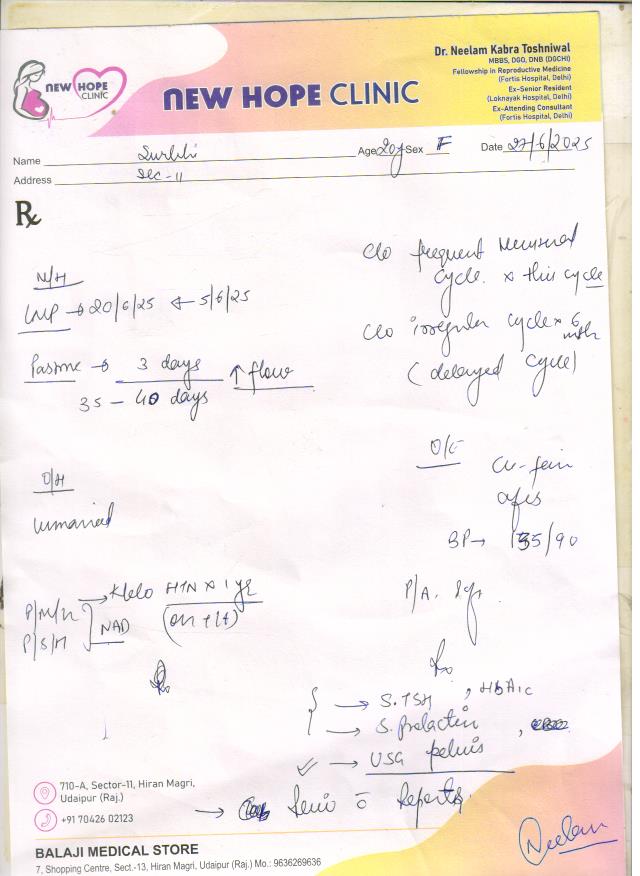 NEW HOPE
CLINIC
NEW HOPE CLINIC
Dr. Neelam Kabra Toshniwal
MBBS, DGO, DNB (DGCHI)
Fellowship in Reproductive Medicine
(Fortis Hospital, Delhi)
Ex-Senior Resident
(Loknayak Hospital, Delhi)
Ex-Attending Consultant
(Fortis Hospital, Delhi)
Name Surbhi Age 20y Sex F Date 27/6/2025
Address Sec-11
Rx
M/H
LMP → 20/6/25 ← 5/6/25
Pastmc → 3 days ↑ flow
35 – 40 days
O/H
unmarried
P/M/H → K/c/o HTN x 1 yr
P/S/H NAD (on t/t)
c/o frequent Menstrual
cycle x this cycle
c/o irregular cycle x 6
mth
(delayed cycle)
O/E
BP → 135/90
P/A.
→ S. TSH, HbA1c
→ S. Prolactin,
✓ → USG pelvis
→ Reports
Neelam
710-A, Sector-11, Hiran Magri,
Udaipur (Raj.)
+91 70426 02123
BALAJI MEDICAL STORE
7, Shopping Centre, Sect.-13, Hiran Magri, Udaipur (Raj.) Mo.: 9636269636